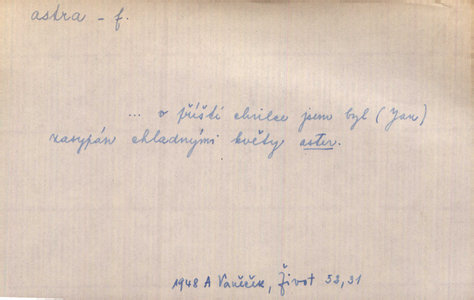 astra - f.
... v příští chvilce jsem byl (Jan)
zasypán chladnými květy aster.
1948 A Vaněček, Život 53,31